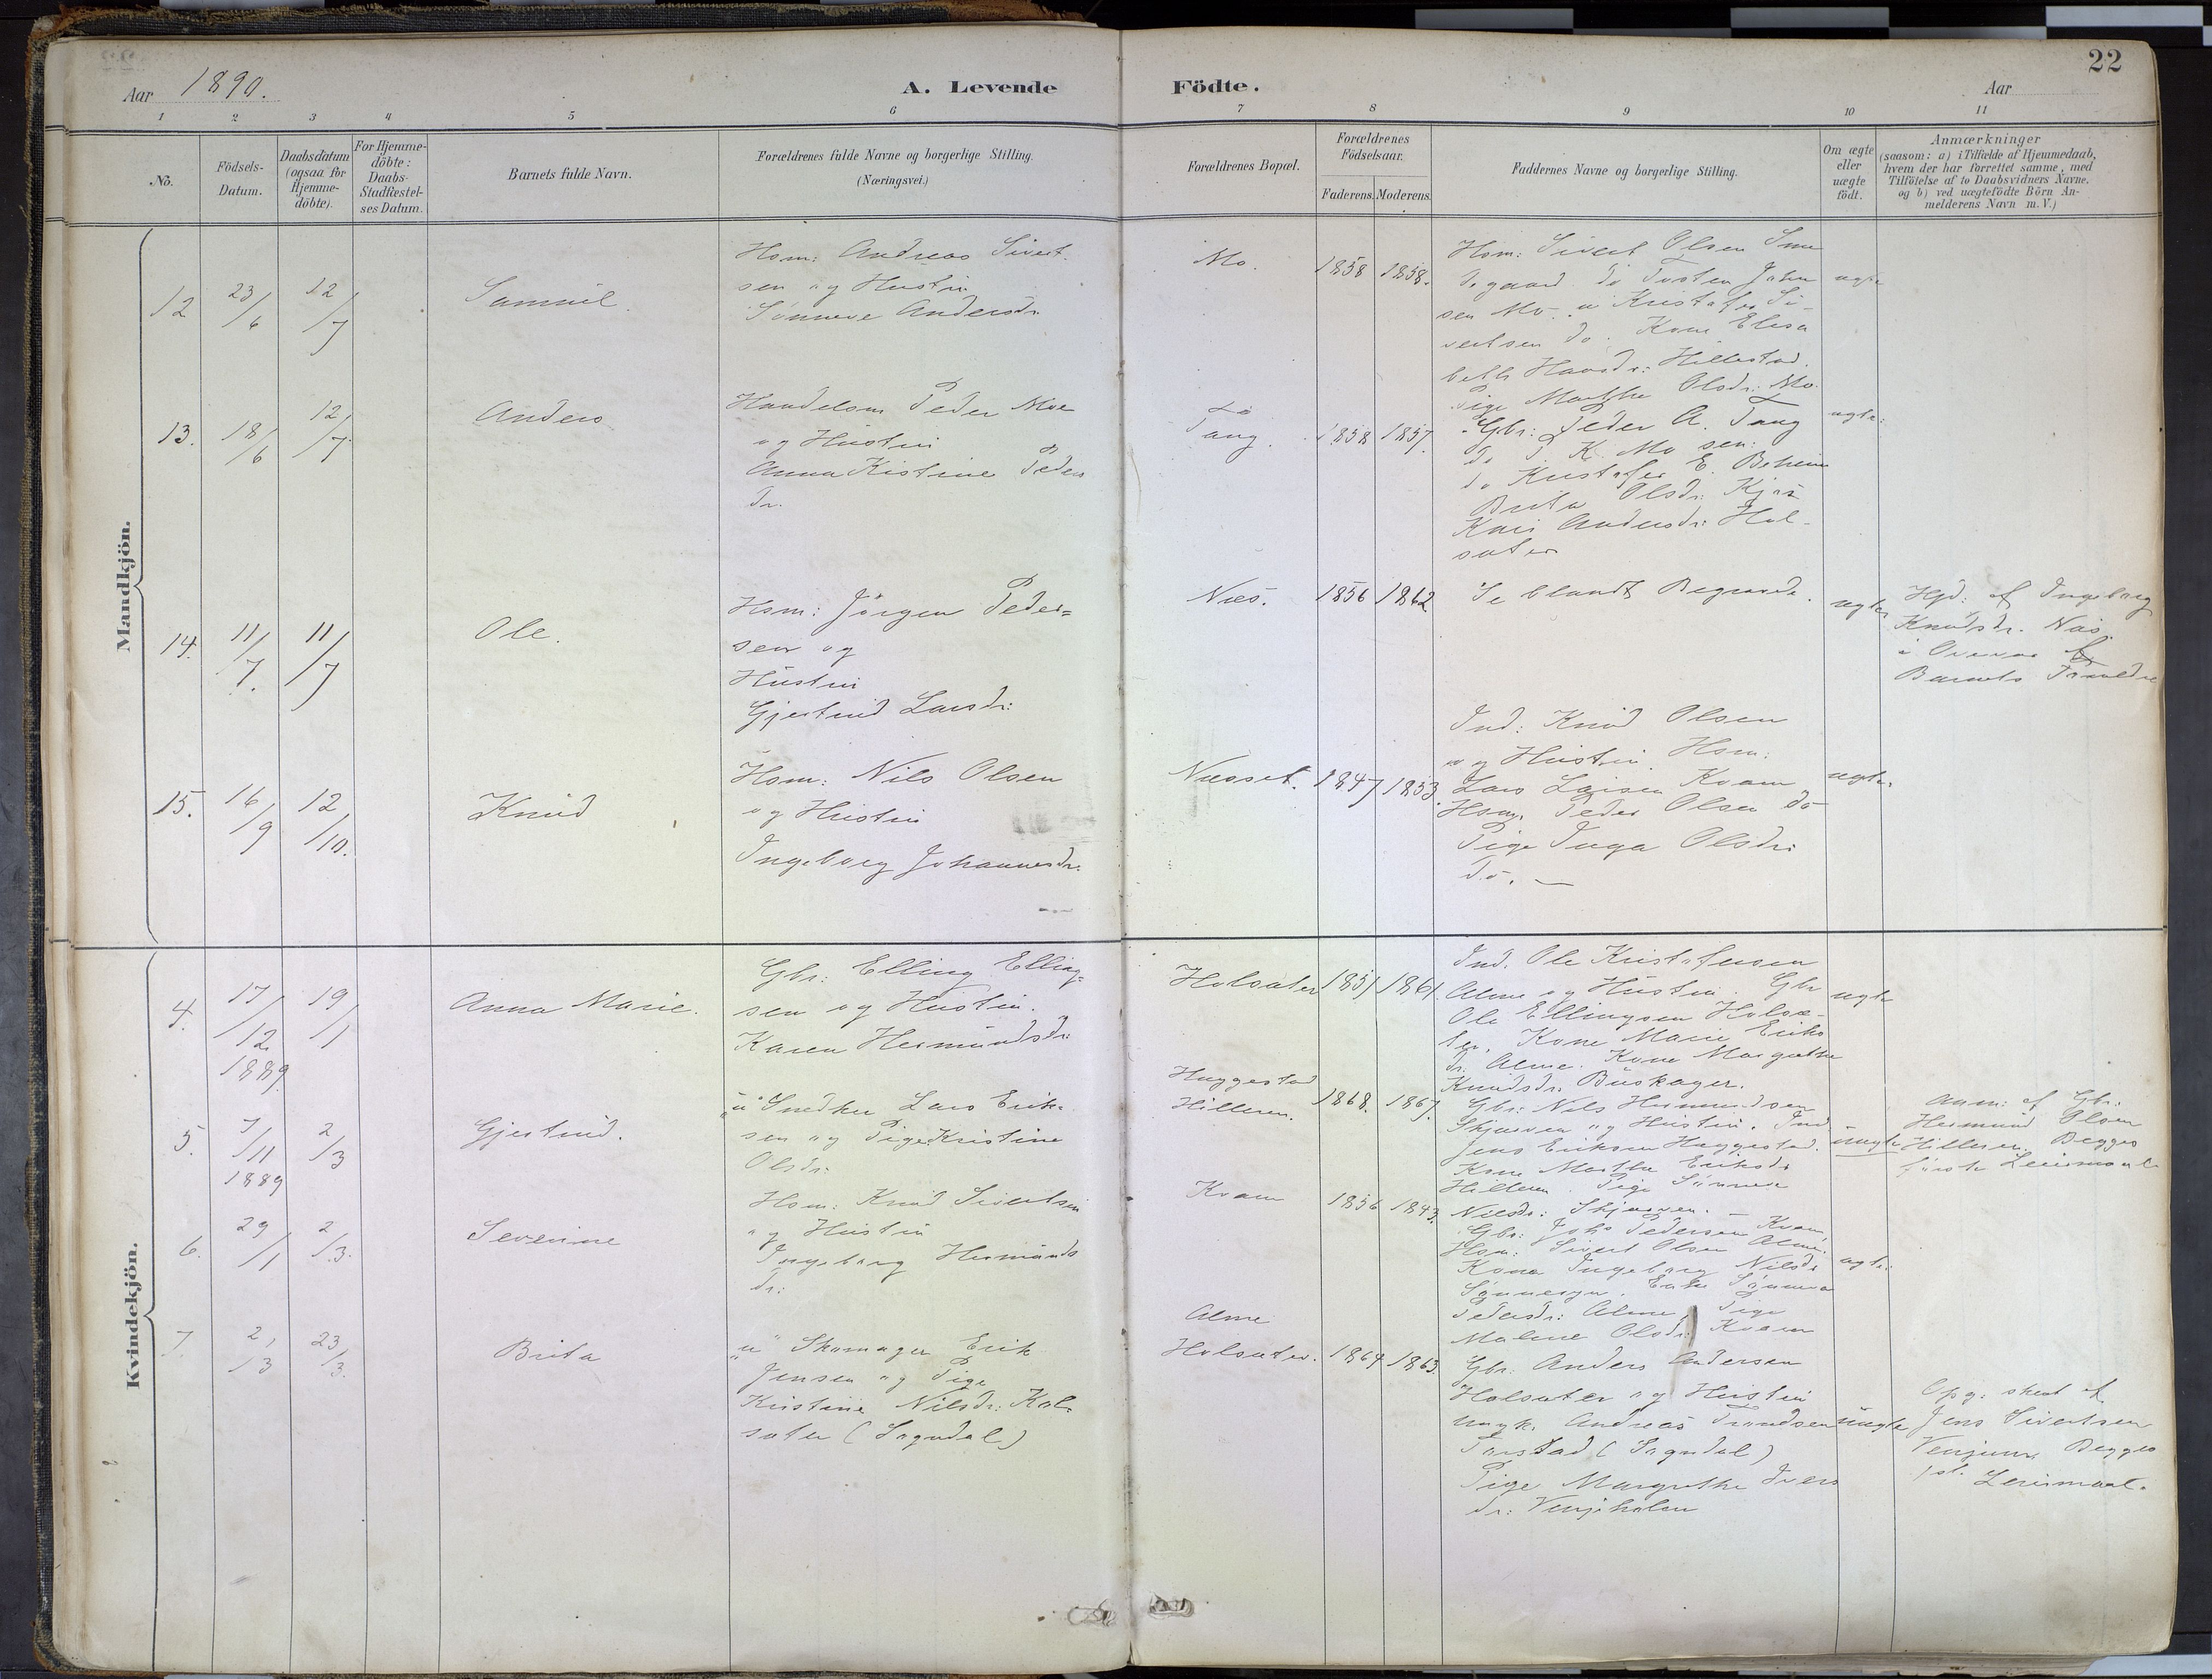 22
Aar 1890.
A. Levende Födte.
Aar
1 2 3 4 5 6 7 8 9 10 11
No.
Födsels-Datum.
Daabsdatum (ogsaa for Hjemme-döbte).
For Hjemme-döbte: Daabs-Stadfæstel-ses Datum.
Barnets fulde Navn.
Forældrenes fulde Navne og borgerlige Stilling.
(Næringsvei.)
Forældrenes Bopæl.
Forældrenes Födselsaar.
Faderens. Moderens.
Faddernes Navne og borgerlige Stilling.
Om ægte eller uægte födt.
Anmærkninger
(saasom: a) i Tilfælde af Hjemmedaab,
hvem der har forrettet samme, med
Tilföielse af to Daabsvidners Navne,
og b) ved uægtefödte Börn An-
melderens Navn m. V.)
Mandkjön.
12 23/6 12/7
Samuel.
Hsm: Andreas Sivert-
sen og Hustru
Sönneve Andersdr.
Mo.
1858 1858.
Hsm: Sivert Olsen
do Tosten John
sen Mo. Kristofer Si-
vertsen do. Kone Elisa
beth Hansdr: Hillestad.
Pige Marthe Olsdr: Mo.
ægte
13. 18/6 12/7
Anders
Handelsm Peder Moe
og Hustru
Anna Kistine Peders
dr.
Tang.
1858 1857.
Gbr: Peder A. Tang
do P. K. Mo sen:
do Kristofer E.
Brita Olsdr:
Kari Andersdr: Hol-
sæter
ægte:
14. 11/7. 11/7
Ole.
Hsm: Jörgen Peder=
sen og
Hustru
Gjertrud Larsdr:
Næs.
1856 1862
Se blandt Begravede.
ægte
Hjd: af Ingeborg
Knudsdr. Næs.
i Overvær af
Barnets Forældre
15. 16/9 12/10.
Knud
Hsm: Nils Olsen
og Hustru
Ingeborg Johannesdr.
Næsset.
1847 1853.
Ind: Knud Olsen
og Hustru. Hsm:
Lars Larsen Kvam
Hsm. Peder Olsen do
Pige Inga Olsdr:
do. —
ægte.
Kvindekjön.
4. 17/12 1889. 19/1
Anna Marie.
Gbr: Elling Elling=
sen og Hustru.
Karen Hermundsdr:
Holsæter
1851 1861.
Ind. Ole Kristofersen
Alme og Hustru. Gbr
Ole Ellingsen Holsæ-
ter. Kone Marie Eriks
dr. Alme. Kone Margrethe
Knudsdr. Buskager.
ægte
5. 7/11 1889 2/3
Gjertrud.
"u" Snedker Lars Erik-
sen og Pige Kristine
Olsdr:
Haggestad
Hilleren.
1868. 1867.
Gbr: Nils Hermundsen
Skjærven og Hustru. Ind
Jens Eriksen Haggestad.
Kone Marthe Eriksdr
Hilleren. Pige Sönneva
Nilsdr: Skjærven. —
uægte
Anm: af Gbr.
Hermund Olsen
Hilleren. Begges
förste Leiermaal
6. 29/1 2/3.
Severine
Hsm: Knud Sivertsen
og Hustru
Ingeborg Hermunds
dr:
Kvam
1856 1843.
Gbr: Johs Pedersen Kvam
Hsm: Sivert Olsen Alme.
Kone Ingeborg Nilsdr
Enke Sönneva
Pedersdr: Alme, Pige
Malene Olsdr: Kvam
ægte:
7. 2/3 23/3.
Brita
"u" Skomager Erik
Jensen og Pige
Kristine Nilsdr: Hol-
sæter (Sogndal)
Alme
Holsæter.
1864 1863.
Gbr. Anders Andersen
Holsæter og Hustru
Ungk. Andreas Trondsen
(Sogndal)
Pige Margrethe Ivers
dr: Venjeholen
uægte
Opg: skeet af
Jens Sivertsen
Venjum. Begges
1ste Leiermaal.